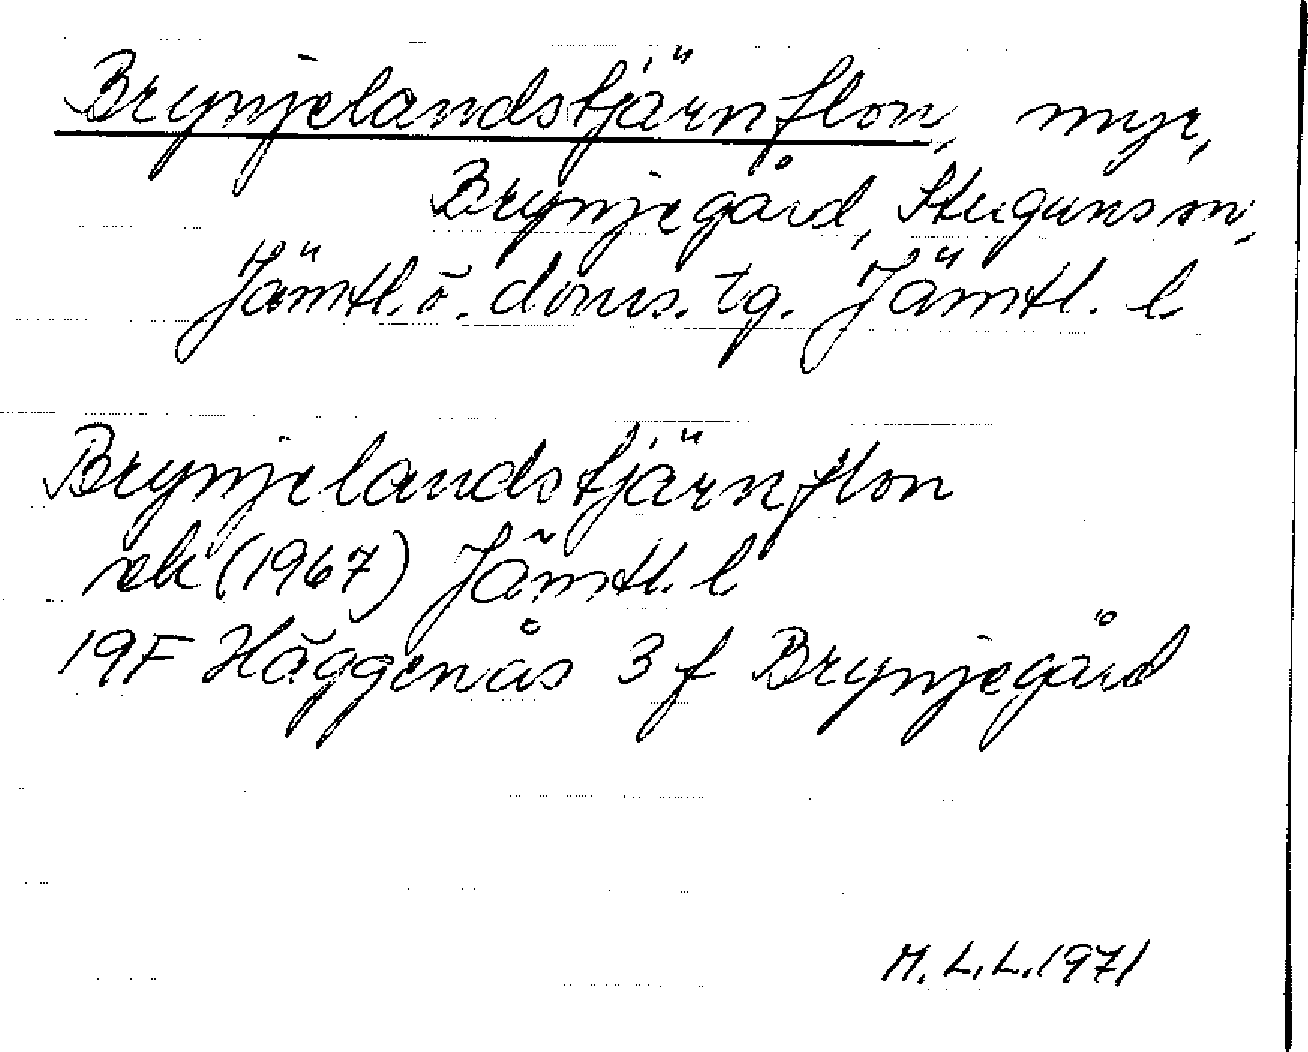 Brynjelandstjärnflon, myr,
Brynjegård, Stuguns sn,
Jämtl. ö. doms. tg. Jämtl. l
Brynjelandstjärnflon
ek (1967) Jämtl. l
19F Häggenås 3 f Brynjegård
M. L. L. 1971